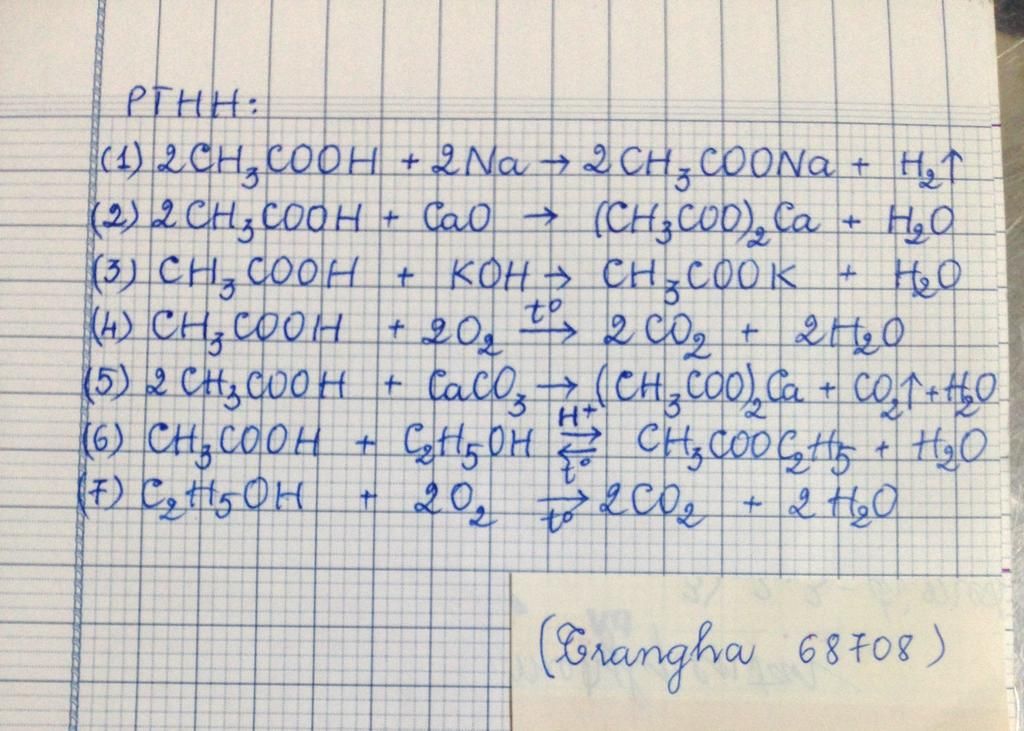 PTHH:
(1) 2CH₃COOH + 2Na → 2CH₃COONa + H₂↑
(2) 2CH₃COOH + CaO → (CH₃COO)₂Ca + H₂O
(3) CH₃COOH + KOH → CH₃COOK + H₂O
(4) CH₃COOH + 2O₂ t⁰→ 2CO₂ + 2H₂O
(5) 2CH₃COOH + CaCO₃ → (CH₃COO)₂Ca + CO₂↑ + H₂O
(6) CH₃COOH + C₂H₅OH H⁺⇌t⁰ CH₃COOC₂H₅ + H₂O
(7) C₂H₅OH + 2O₂ →t⁰ 2CO₂ + 2H₂O
(Trangha 68708)